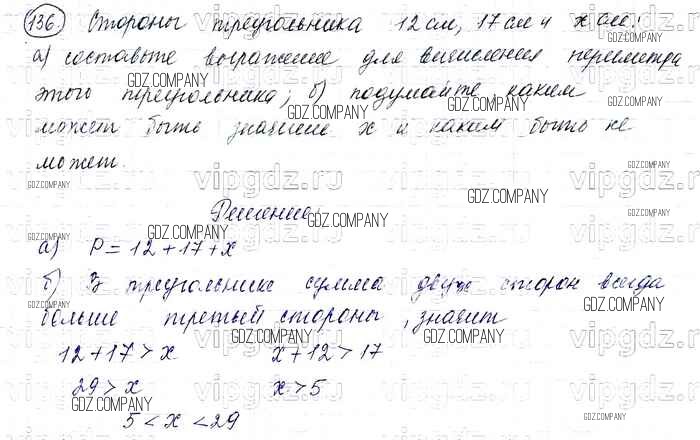 136. Стороны треугольника 12 см, 17 см и x см.
а) составьте выражение для вычисления периметра
этого треугольника; б) подумайте, каким
может быть значение x и каким быть не
может.
Решение
а) P = 12 + 17 + x
б) В треугольнике сумма двух сторон всегда
больше третьей стороны, значит
12 + 17 > x x + 12 > 17
29 > x x > 5
5 < x < 29
GDZ.COMPANY
vipgdz.ru